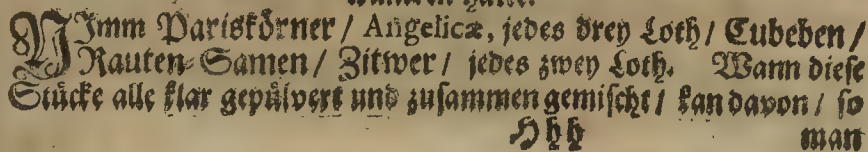 Nimm Parißkörner / Angelicæ, jedes drey Loth / Cubeben /
Rauten-Samen / Zitwer / jedes zwey Loth. Wann diese
Stücke alle klar gepülvert und zusammen gemischt / kan davon / so
Hhh man